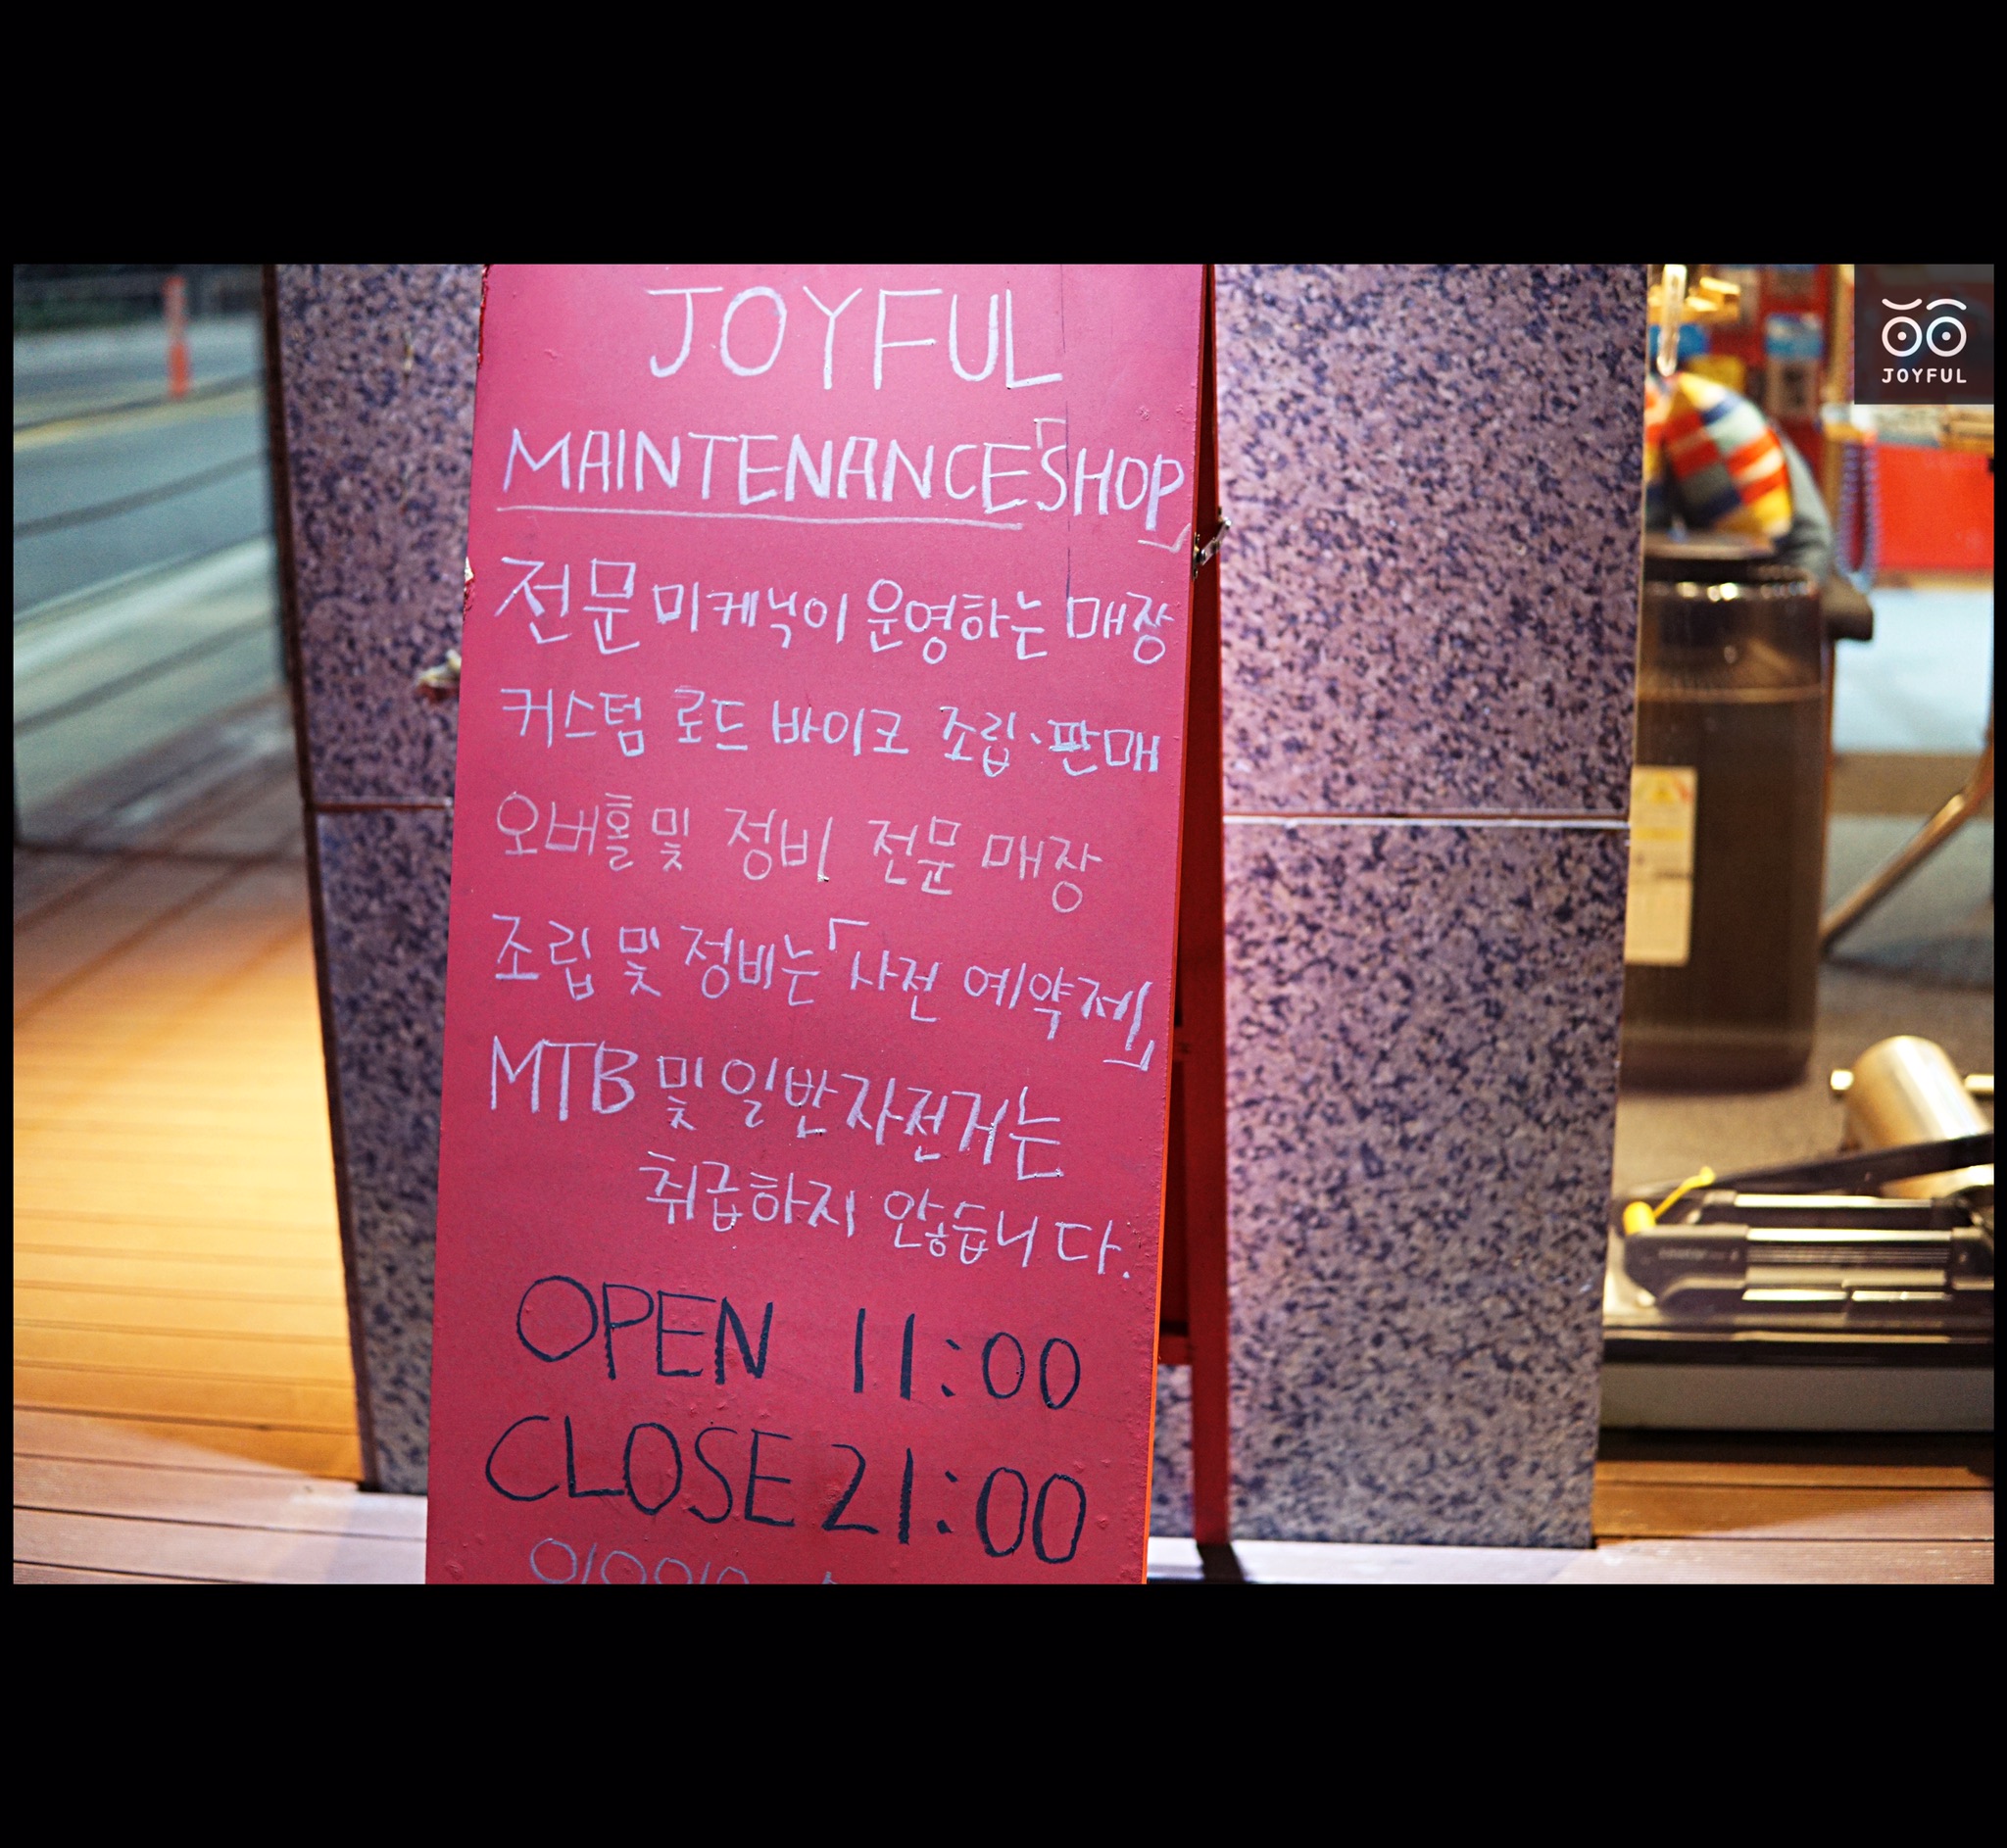 JOYFUL
MAINTENANCE「SHOP」
전문 미케닉이 운영하는 매장
커스텀 로드 바이크 조립、판매
오버홀 및 정비 전문 매장
조립 및 정비는「사전 예약제」
MTB 및 일반자전거는
취급하지 않습니다.
OPEN 11:00
CLOSE 21:00
JOYFUL